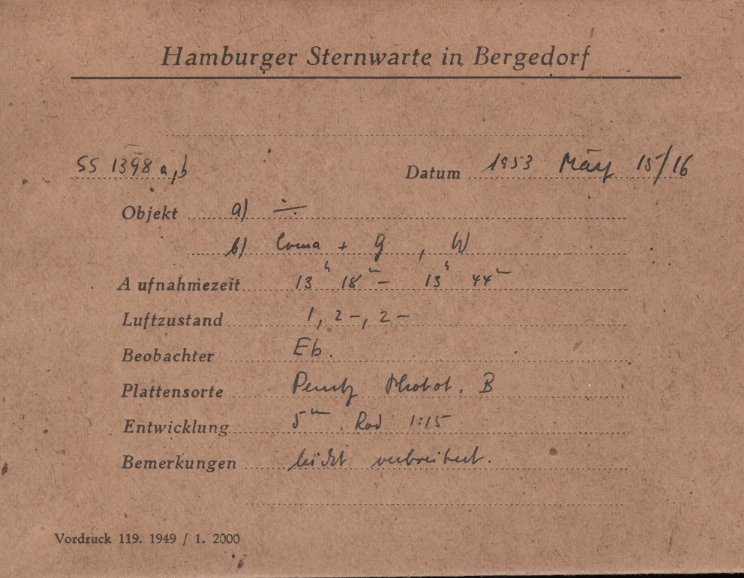 Hamburger Sternwarte in Bergedorf
SS 1398 a,b
Datum 1953 März 15/16
Objekt a) ÷
b) Coma + g, W
Aufnahmezeit 13h 18m – 13h 44m
Luftzustand 1, 2–, 2–
Beobachter Eb.
Plattensorte Perutz B
Entwicklung 5m Rod 1:15
Bemerkungen leicht verbreitert.
Vordruck 119. 1949 / 1. 2000